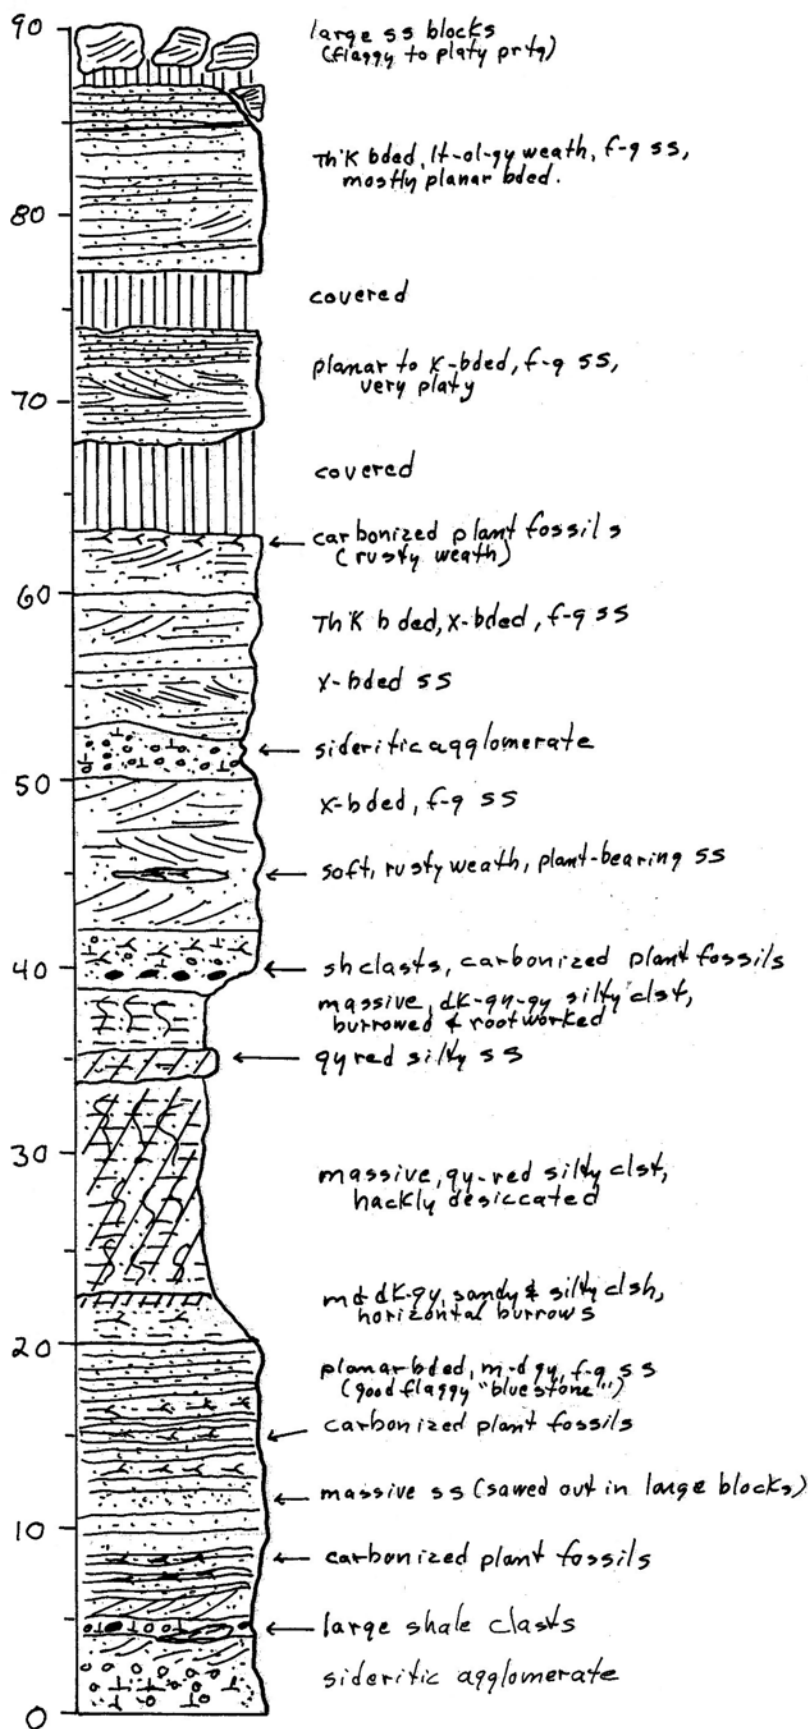 90
large ss blocks
(flaggy to platy prtg)
Th'K bded, lt-ol-gy weath, f-g ss,
mostly planar bded.
80
covered
planar to x-bded, f-g ss,
very platy
70
covered
carbonized plant fossils
(rusty weath)
60
Th'K bded, x-bded, f-g ss
x-bded ss
sideritic agglomerate
50
x-bded, f-g ss
soft, rusty weath, plant-bearing ss
40
sh clasts, carbonized plant fossils
massive, dK-gn-gy silty clst,
burrowed & rootworked
gy red silty ss
30
massive, gy-red silty clst,
hackly desiccated
md dK-gy, sandy & silty clsh,
horizontal burrows
20
planar bded, m-d gy, f-g ss
(good flaggy "bluestone")
carbonized plant fossils
massive ss (sawed out in large blocks)
10
carbonized plant fossils
large shale clasts
sideritic agglomerate
0